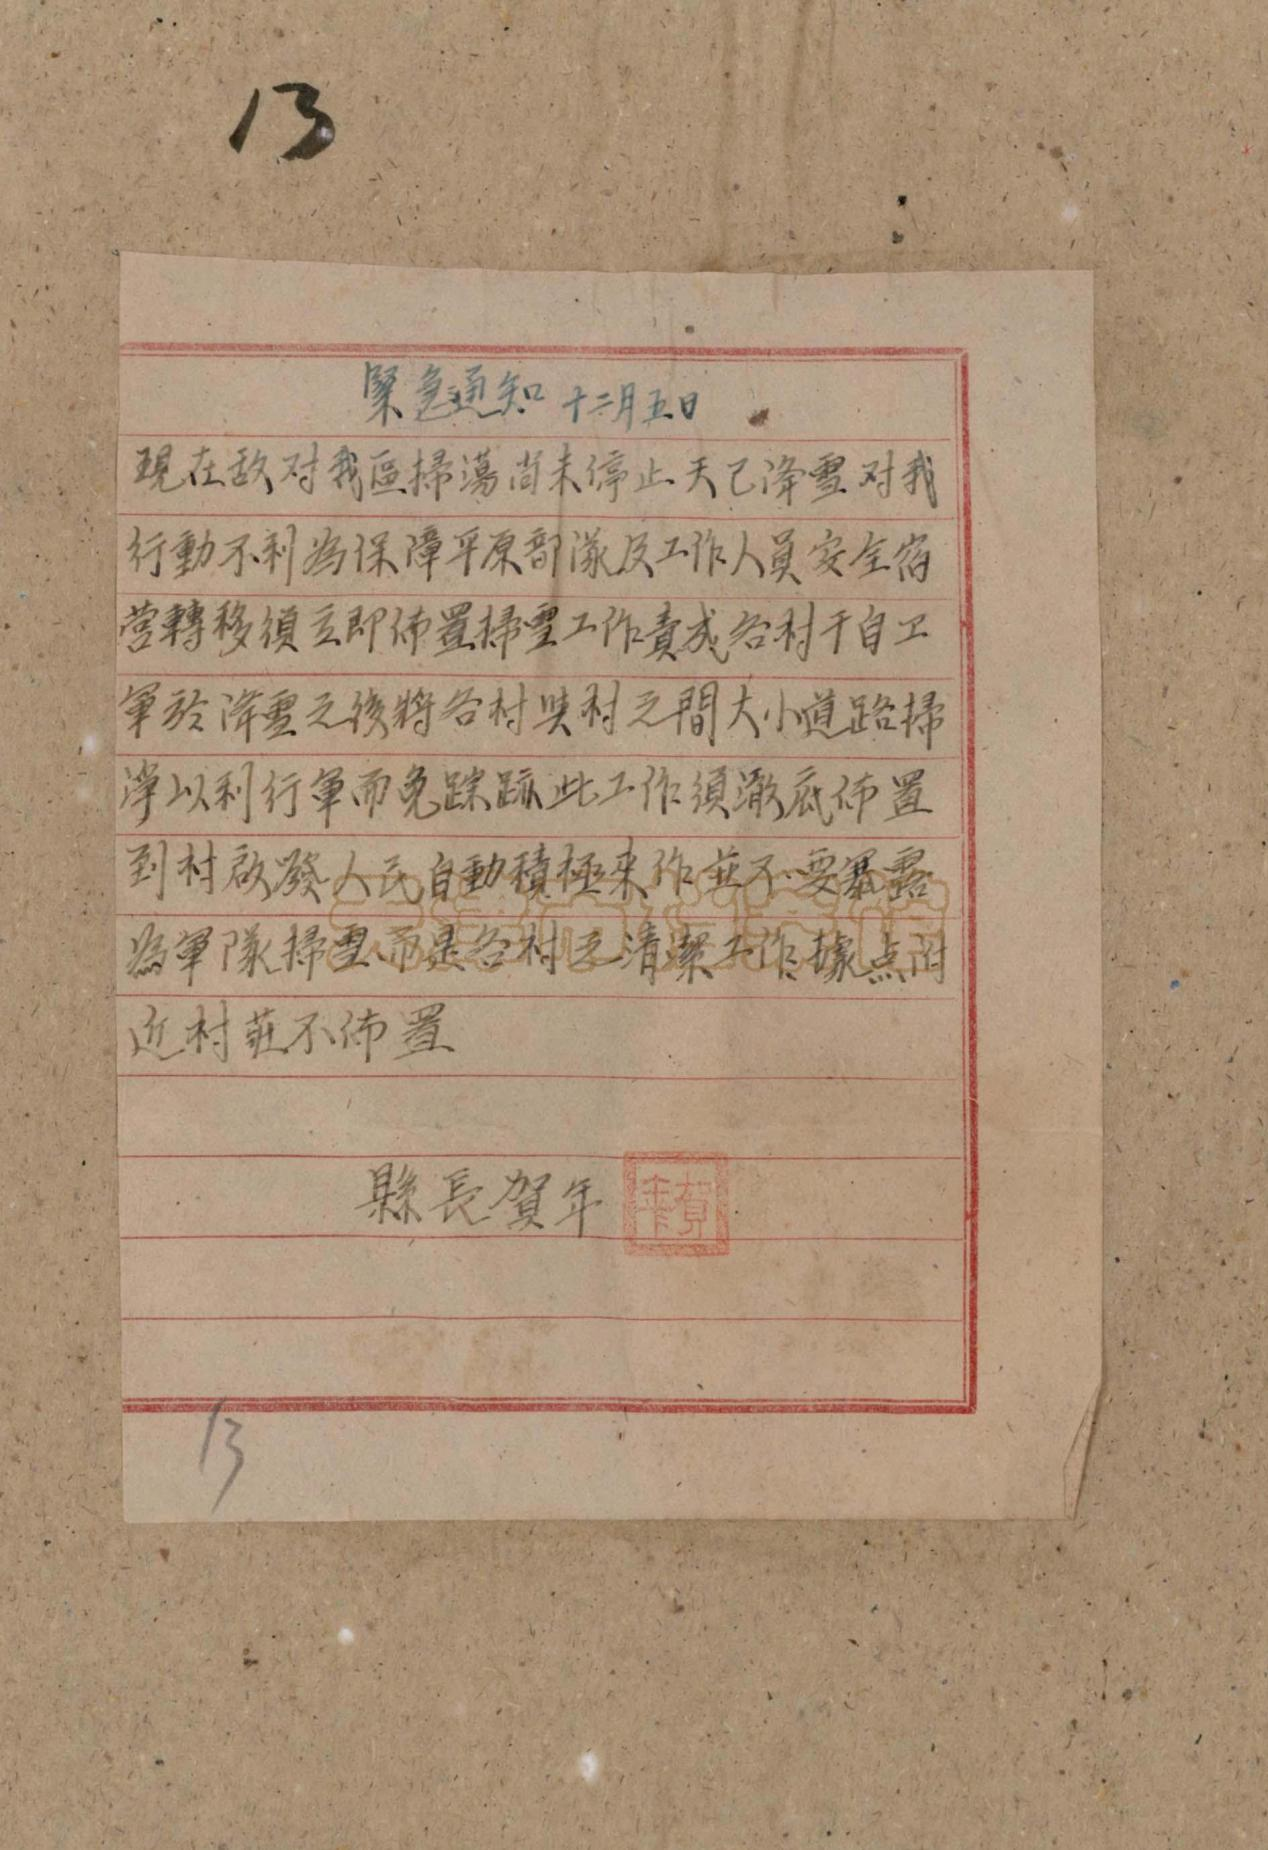 13
緊急通知 十二月五日
現在敌对我區掃蕩尚未停止天已降雪对我
行動不利為保障平原部隊及工作人員安全宿
营轉移須立即佈置掃雪工作責成各村干自卫
軍於降雪之後将各村與村之間大小道路掃
淨以利行軍而免踪跡此工作須澈底佈置
到村啟發人民自動積極來作並不要暴露
為軍隊掃雪而是各村之清潔工作據点附
近村莊不佈置
縣長賀年
賀年
13